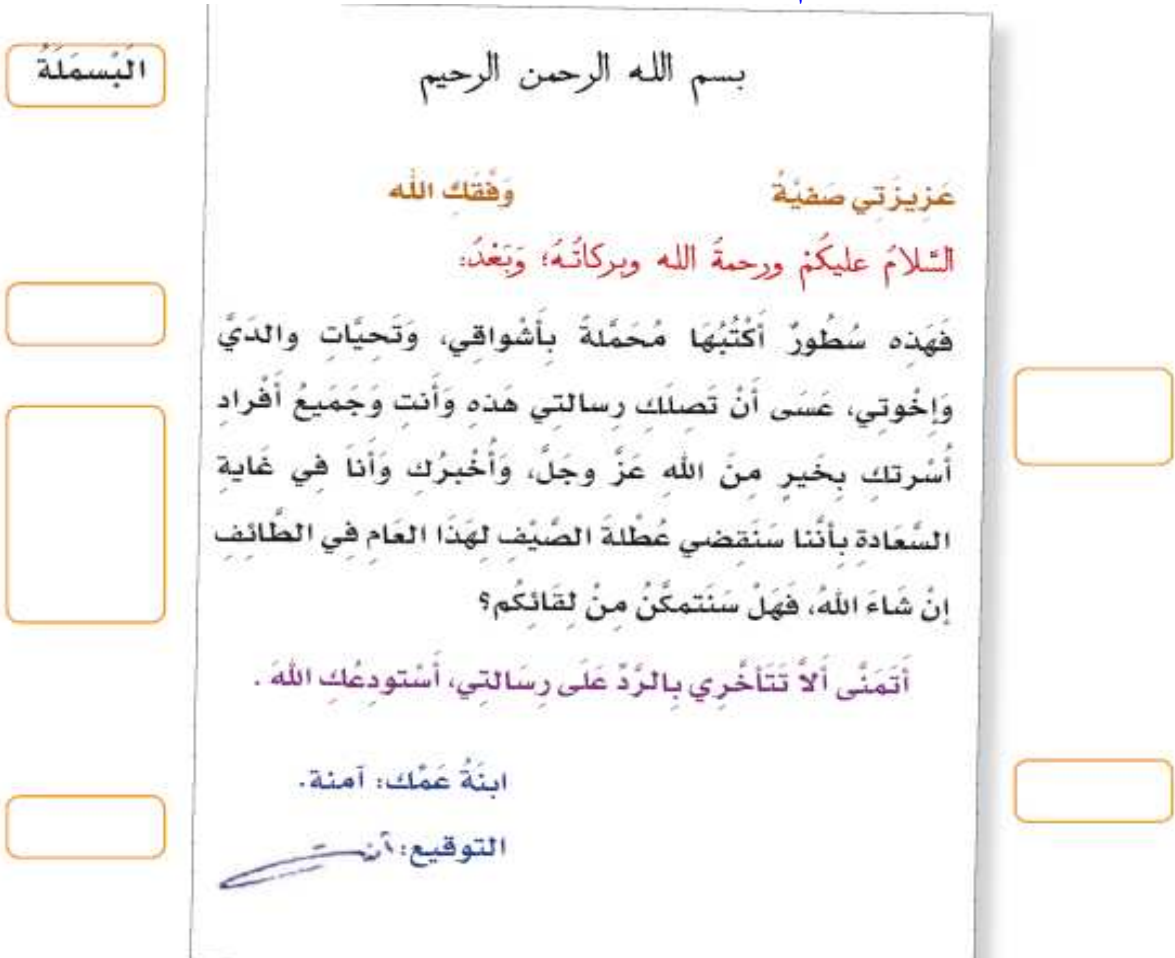 البَسمَلَةُ
بسم الله الرحمن الرحيم
عَزيزَتي صَفيَّةُ وَفَّقَك اللّه
السَّلامُ عليكُمْ ورحمةُ الله وبركاتُهُ؛ وَبَعْدُ:
فَهَذِه سُطُورٌ أَكْتُبُهَا مُحَمَّلةً بِأَشْواقي، وَتَحيَّات والدَيَّ
وَإخْوتِي، عَسَى أَنْ تَصِلَكِ رِسالتي هَذه وَأَنت وَجَميعُ أفْراد
أُسْرتك بِخَيرٍ مِنَ اللّه عَزَّ وجَلَّ، وَأُخْبرُك وَأَنَا في غَاية
السَّعَادةِ بأنَّنا سَنَقضي عُطْلةَ الصَّيْف لهَذَا العَام في الطَّائف
إنْ شَاءَ اللّهُ، فَهَلْ سَنَتمكَّنُ مِنْ لِقَائكُم؟
أَتَمَنَّى أَلاَّ تَتَأخَّرِي بِالرَّدِّ عَلَى رِسَالتِي، أَسْتودعُك اللّهَ .
ابنَةُ عَمِّك: آمنة.
التوقيع: